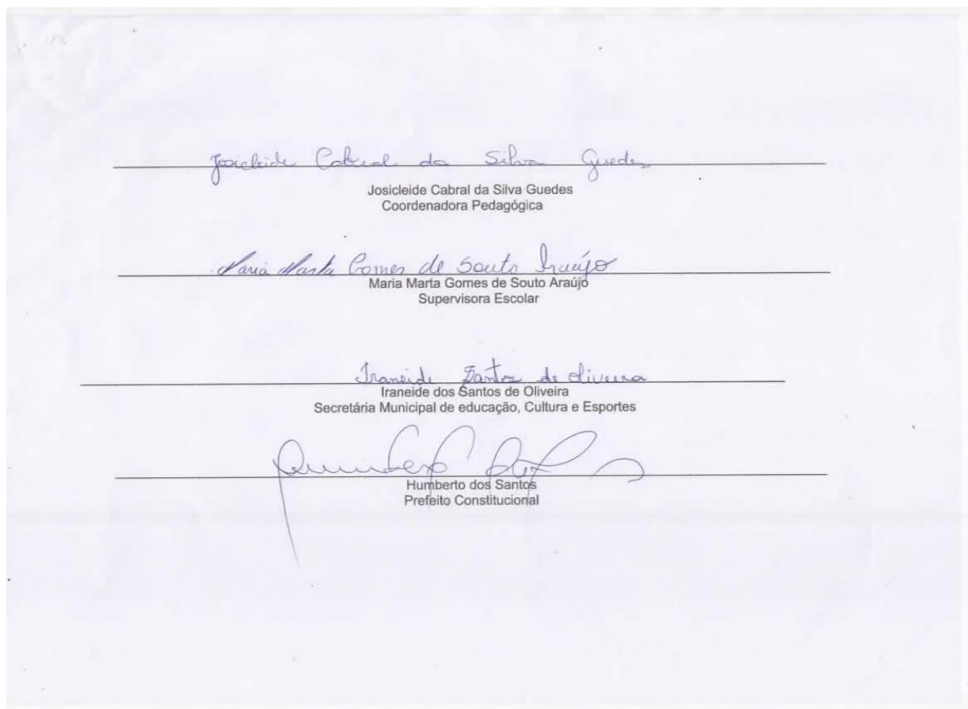 Josicleide Cabral da Silva Guedes
Josicleide Cabral da Silva Guedes
Coordenadora Pedagógica
Maria Marta Gomes de Souto Araújo
Maria Marta Gomes de Souto Araújo
Supervisora Escolar
Iraneide Santos de Oliveira
Iraneide dos Santos de Oliveira
Secretária Municipal de educação, Cultura e Esportes
Humberto dos Santos
Prefeito Constitucional